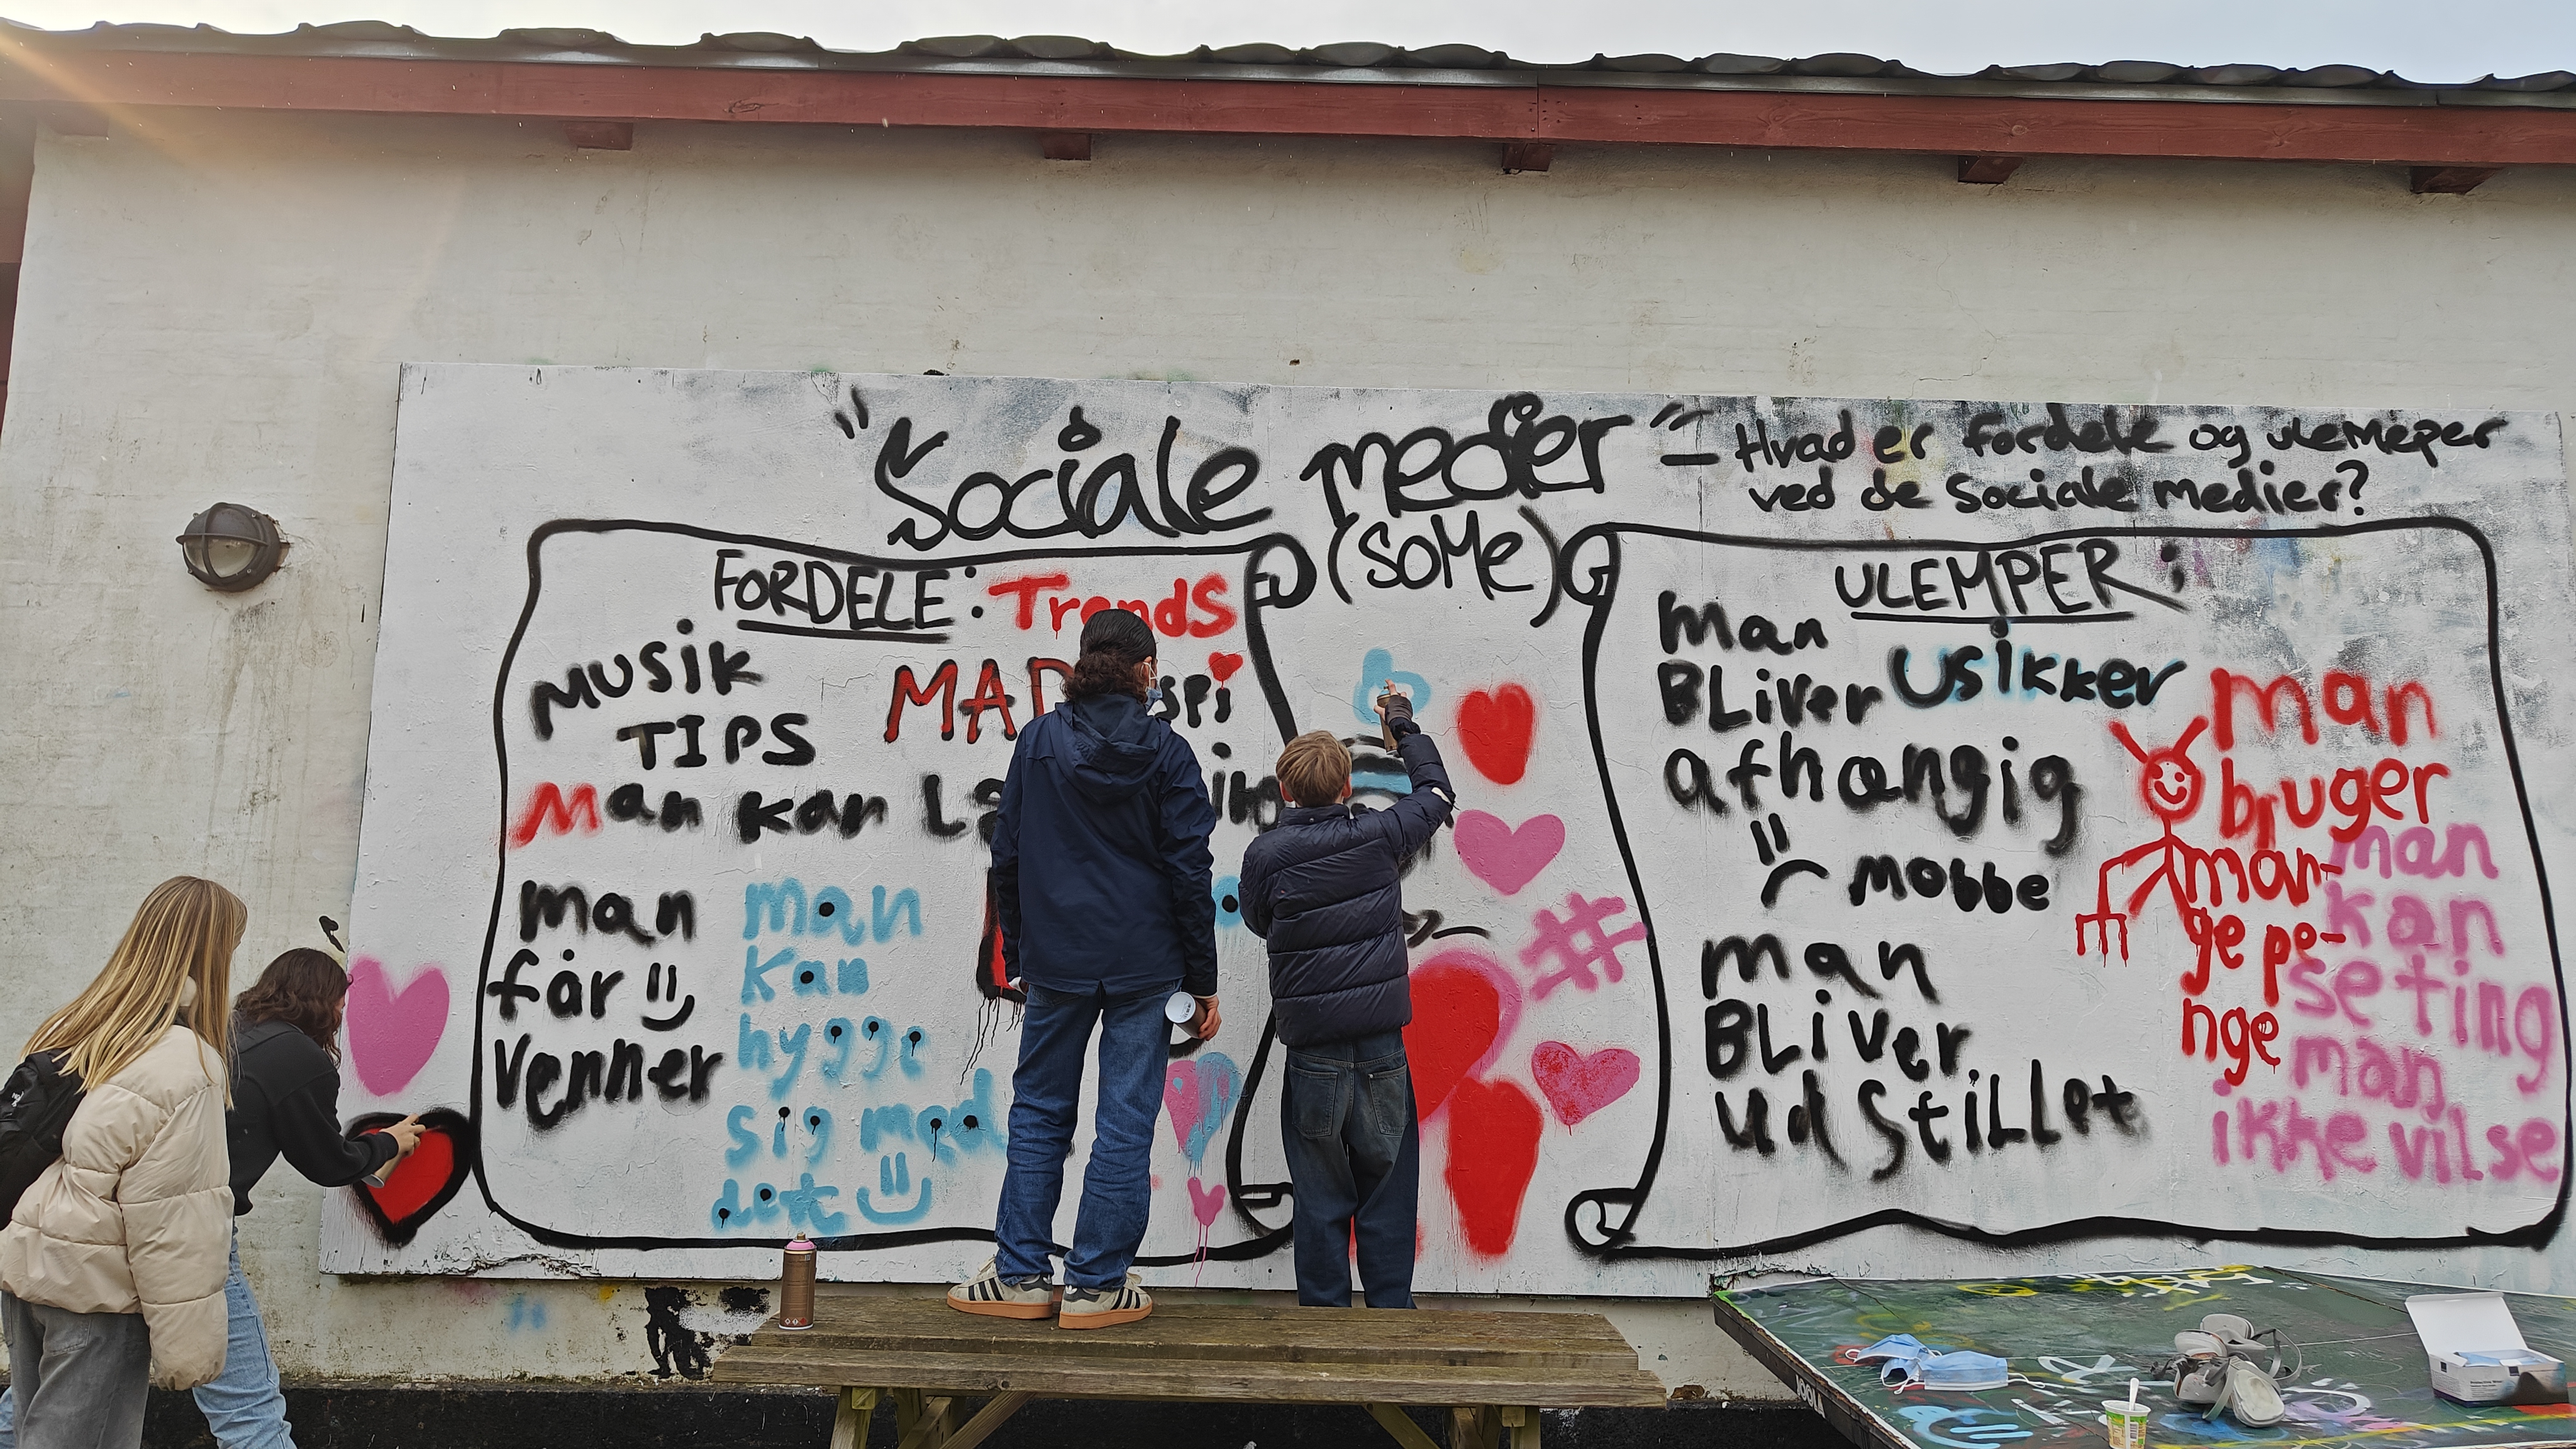 "Sociale medier"
- Hvad er fordele og ulemeper
ved de sociale medier?
(SoMe)
FORDELE: Trends
MUSIK
TIPS
MAD
Man kan
man
får
venner
man
kan
hygge
sig med
det
ULEMPER:
man
BLiver usikker
afhængig
mobbe
man
BLiver
udstillet
man
bruger
man-
ge pe-
nge
man
kan
se ting
man
ikke vil se
#
JOOLA